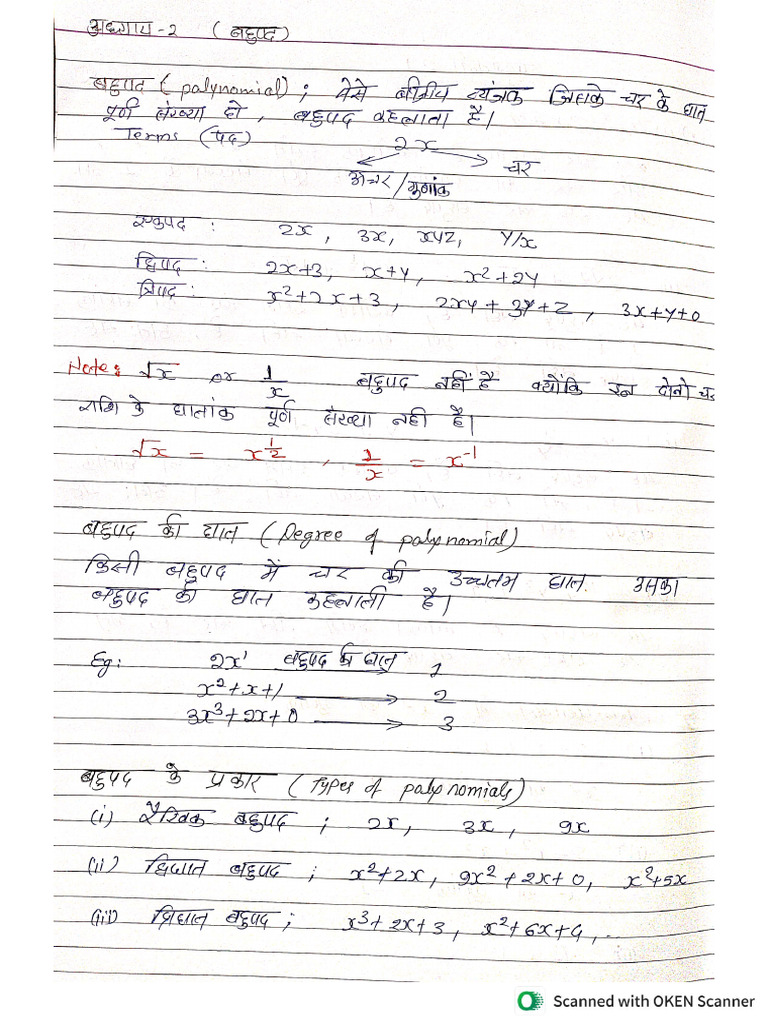 अध्याय-2 (बहुपद)
बहुपद (polynomial) ; वैसे बीजीय व्यंजक जिसके चर के घात
पूर्ण संख्या हो, बहुपद कहलाता है।
Terms (पद) 2x
चर
अचर/गुणांक
एकपद : 2x, 3x, xyz, y/x
द्विपद : 2x+3, x+y, x²+2y
त्रिपद : x²+2x+3, 2xy+3y+z, 3x+y+0
Note: √x or 1/x बहुपद नहीं है क्योंकि इन दोनो चर
राशि के घातांक पूर्ण संख्या नही है।
√x = x^1/2, 1/x = x⁻¹
बहुपद की घात (Degree of polynomial)
किसी बहुपद में चर की उच्चतम घात उसका
बहुपद की घात कहलाती है।
Eg: 2x¹ बहुपद की घात 1
x²+x+1 → 2
3x³+2x+0 → 3
बहुपद के प्रकार (Types of polynomials)
(i) रैखिक बहुपद ; 2x, 3x, 9x
(ii) द्विघात बहुपद ; x²+2x, 9x²+2x+0, x²+5x
(iii) त्रिघात बहुपद ; x³+2x+3, x²+6x+4,...
Scanned with OKEN Scanner